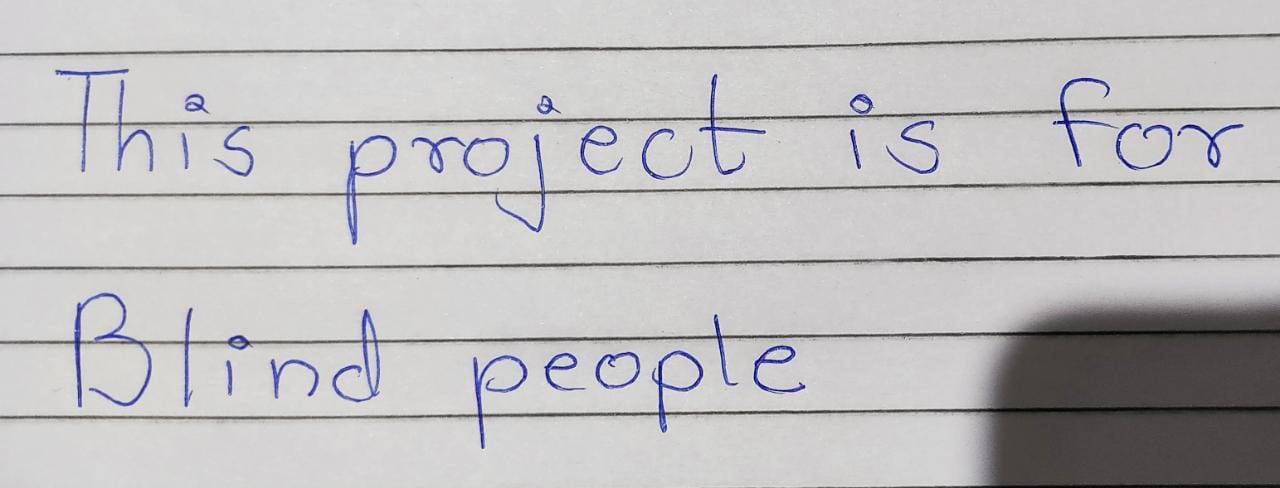 This project is for
Blind people